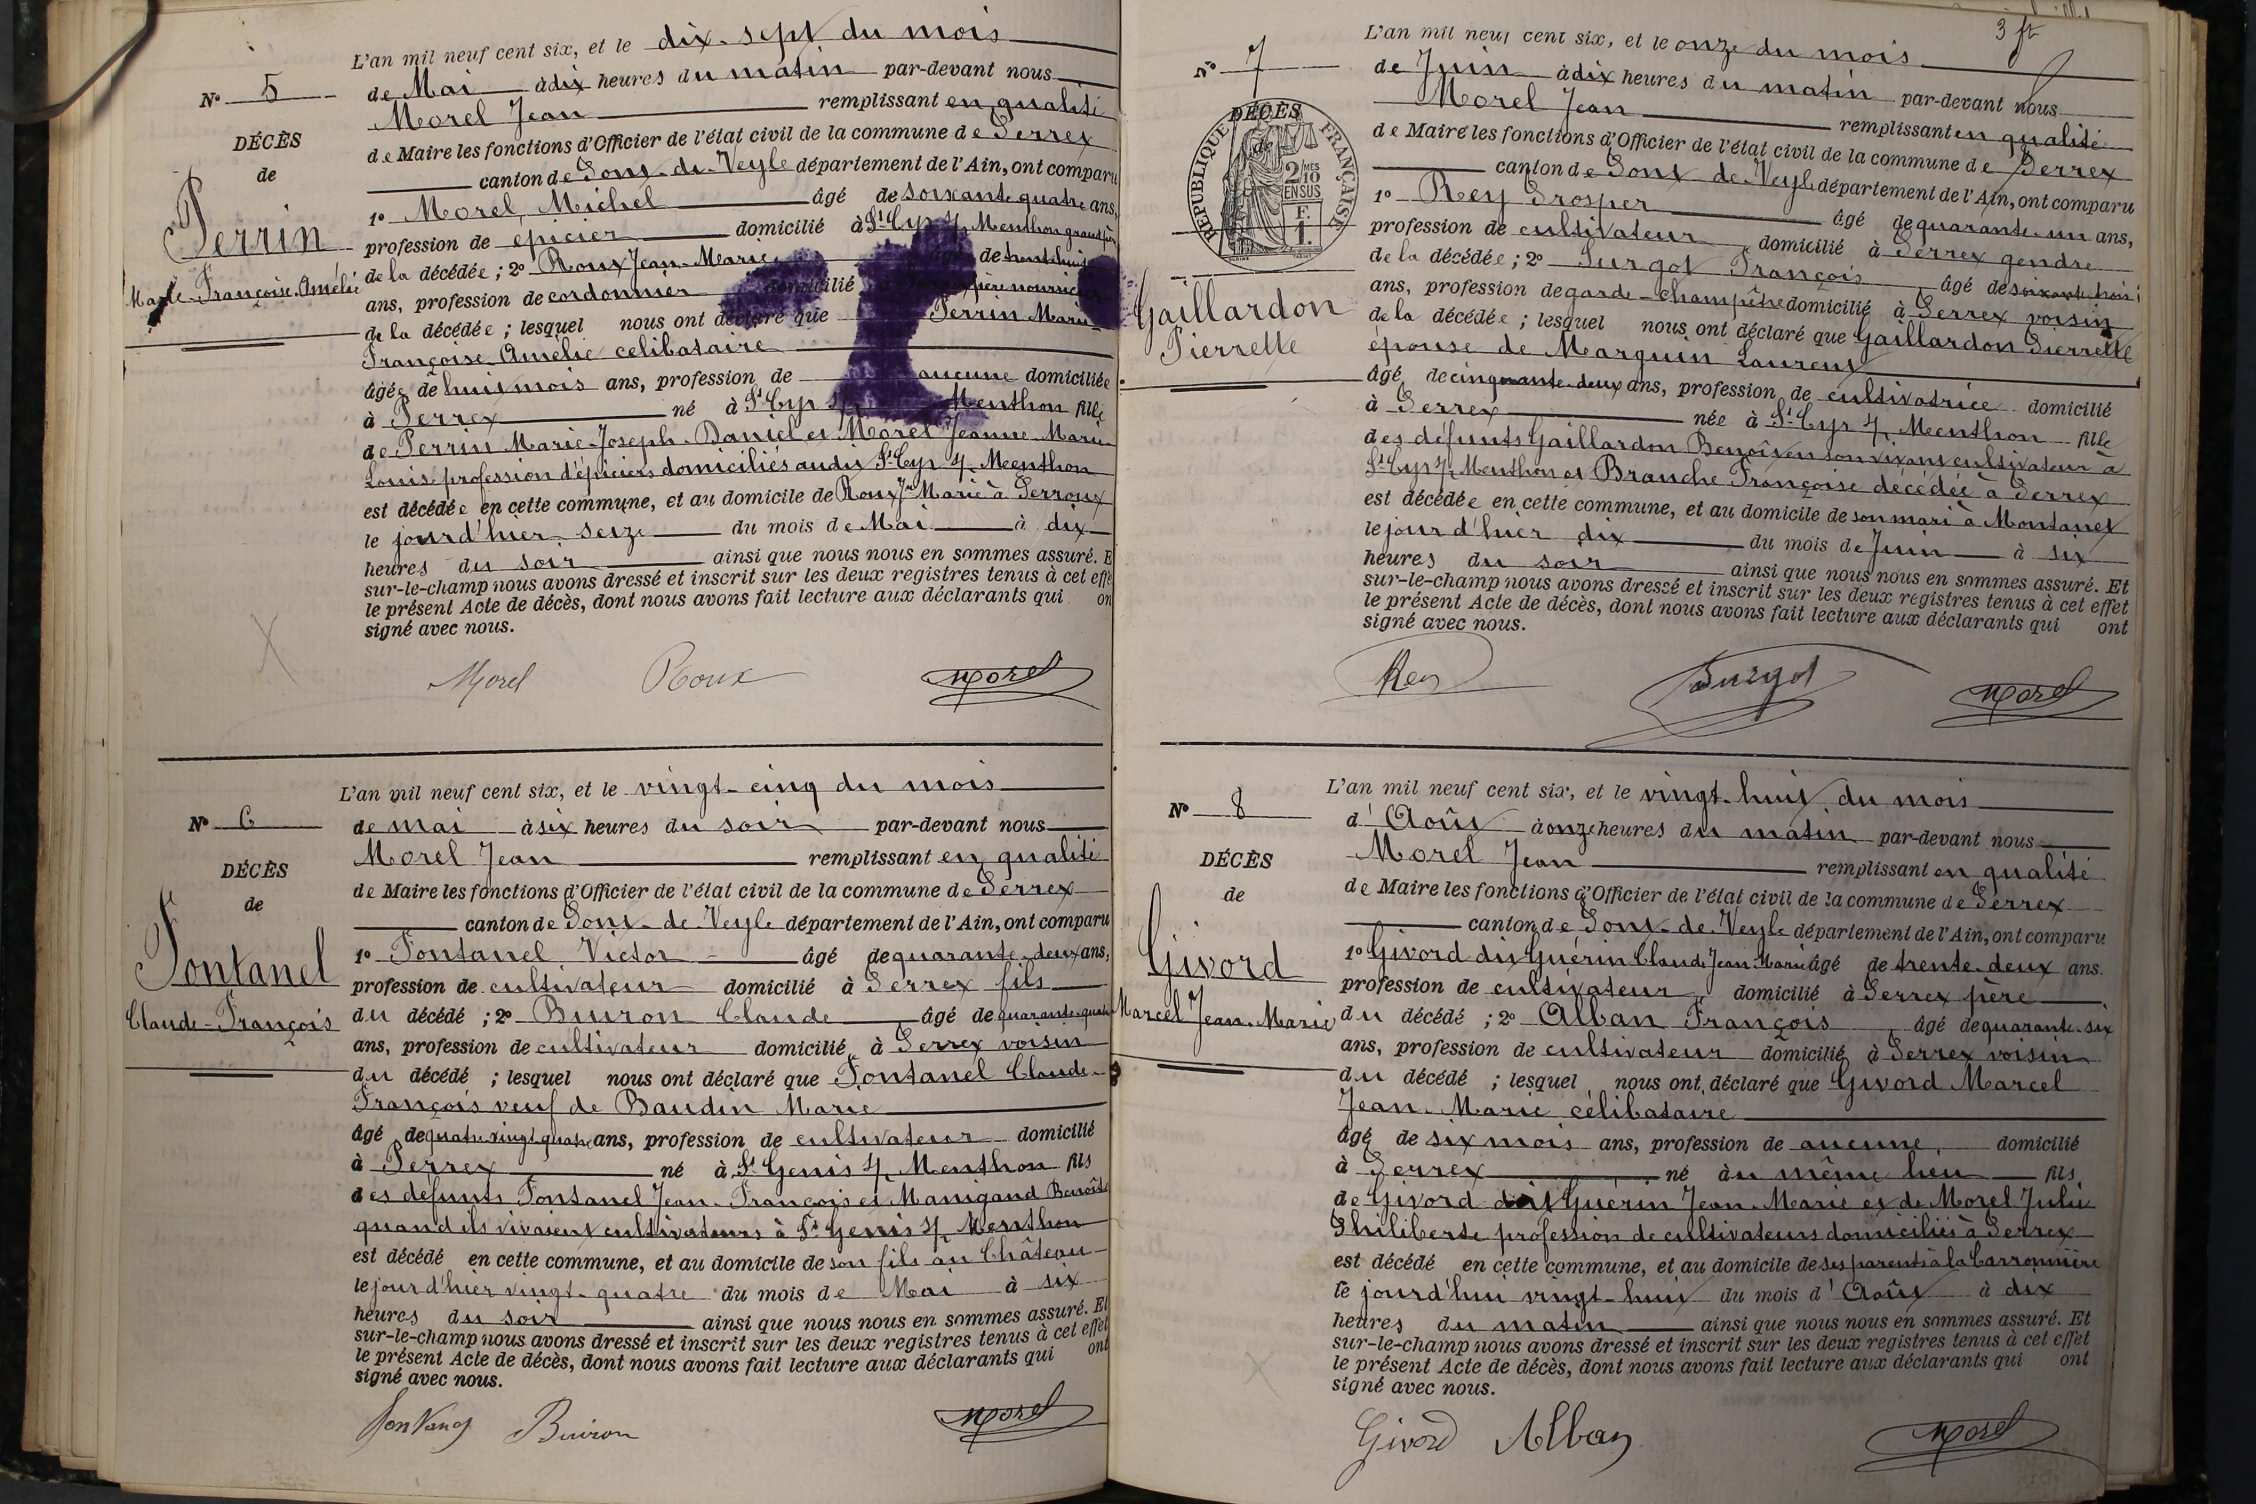 N° 5
DÉCÈS
de
Perrin
Marie-Françoise-Amélie
L'an mil neuf cent six, et le dix-sept du mois
de Mai à dix heures du matin par-devant nous
Morel Jean remplissant en qualité
de Maire les fonctions d'Officier de l'état civil de la commune de Perrex
canton de Pont-de-Veyle département de l'Ain, ont comparu
1° Morel Michel âgé de soixante quatre ans,
profession de épicier domicilié à St Cyr s/ Menthon grand père
de la décédée ; 2° Roux Jean-Marie âgé de trente huit
ans, profession de cordonnier domicilié à père nourricier
de la décédée ; lesquel nous ont déclaré que Perrin Marie-
Françoise Amélie célibataire
âgée de huit mois ans, profession de aucune domiciliée
à Perrex né à St Cyr s/ Menthon fille
de Perrin Marie-Joseph-Daniel et Morel Jeanne-Marie-
Louise profession d'épiciers domiciliés audit St Cyr s/ Menthon
est décédée en cette commune, et au domicile de Roux Jn Marie à Perroux
le jourd'hier seize du mois de Mai à dix
heures du soir ainsi que nous nous en sommes assuré. E
sur-le-champ nous avons dressé et inscrit sur les deux registres tenus à cet effe
le présent Acte de décès, dont nous avons fait lecture aux déclarants qui on
signé avec nous.
Morel Roux Morel
N° 6
DÉCÈS
de
Fontanel
Claude-François
L'an mil neuf cent six, et le vingt-cinq du mois
de mai à six heures du soir par-devant nous
Morel Jean remplissant en qualité
de Maire les fonctions d'Officier de l'état civil de la commune de Perrex
canton de Pont-de-Veyle département de l'Ain, ont comparu
1° Fontanel Victor âgé de quarante-deux ans,
profession de cultivateur domicilié à Perrex fils
du décédé ; 2° Buiron Claude âgé de quarante-quatre
ans, profession de cultivateur domicilié à Perrex voisin
du décédé ; lesquel nous ont déclaré que Fontanel Claude-
François veuf de Baudin Marie
âgé de quatre-vingt-quatre ans, profession de cultivateur domicilié
à Perrex né à St Genis s/ Menthon fils
des défunts Fontanel Jean-François et Manigand Benoîte
quand ils vivaient cultivateurs à St Genis s/ Menthon
est décédé en cette commune, et au domicile de son fils au Château
le jour d'hier vingt-quatre du mois de Mai à six
heures du soir ainsi que nous nous en sommes assuré. Et
sur-le-champ nous avons dressé et inscrit sur les deux registres tenus à cet effet
le présent Acte de décès, dont nous avons fait lecture aux déclarants qui ont
signé avec nous.
Fontanel Buiron Morel
3 ft
N° 7
DÉCÈS
de
RÉPUBLIQUE FRANÇAISE
2/10 MES
EN SUS
F.
1.
Gaillardon
Pierrette
L'an mil neuf cent six, et le onze du mois
de Juin à dix heures du matin par-devant nous
Morel Jean remplissant en qualité
de Maire les fonctions d'Officier de l'état civil de la commune de Perrex
canton de Pont de Veyle département de l'Ain, ont comparu
1° Rey Prosper âgé de quarante-un ans,
profession de cultivateur domicilié à Perrex gendre
de la décédée ; 2° Surgot François âgé de soixante trois
ans, profession de garde-champêtre domicilié à Perrex voisin
de la décédée ; lesquel nous ont déclaré que Gaillardon Pierrette
épouse de Marguin Laurent
âgé de cinquante-deux ans, profession de cultivatrice domicilié
à Perrex née à St Cyr s/ Menthon fille
des défunts Gaillardon Benoît en son vivant cultivateur à
St Cyr s/ Menthon et Branche Françoise décédée à Perrex
est décédée en cette commune, et au domicile de son mari à Montanet
le jour d'hier dix du mois de Juin à six
heures du soir ainsi que nous nous en sommes assuré. Et
sur-le-champ nous avons dressé et inscrit sur les deux registres tenus à cet effet
le présent Acte de décès, dont nous avons fait lecture aux déclarants qui ont
signé avec nous.
Rey Surgot Morel
N° 8
DÉCÈS
de
Givord
Marcel Jean-Marie
L'an mil neuf cent six, et le vingt-huit du mois
d'Août à onze heures du matin par-devant nous
Morel Jean remplissant en qualité
de Maire les fonctions d'Officier de l'état civil de la commune de Perrex
canton de Pont-de-Veyle département de l'Ain, ont comparu
1° Givord dit Guérin Claude Jean-Marie âgé de trente-deux ans.
profession de cultivateur domicilié à Perrex père
du décédé ; 2° Alban François âgé de quarante-six
ans, profession de cultivateur domicilié à Perrex voisin
du décédé ; lesquel nous ont déclaré que Givord Marcel
Jean-Marie célibataire
âgé de six mois ans, profession de aucune domicilié
à Perrex né au même lieu fils
de Givord dit Guérin Jean-Marie et de Morel Julie
Philiberte profession de cultivateurs domiciliés à Perrex
est décédé en cette commune, et au domicile de ses parents à la Carronnière
le jourd'hui vingt-huit du mois d'Août à dix
heures du matin ainsi que nous nous en sommes assuré. Et
sur-le-champ nous avons dressé et inscrit sur les deux registres tenus à cet effet
le présent Acte de décès, dont nous avons fait lecture aux déclarants qui ont
signé avec nous.
Givord Alban Morel